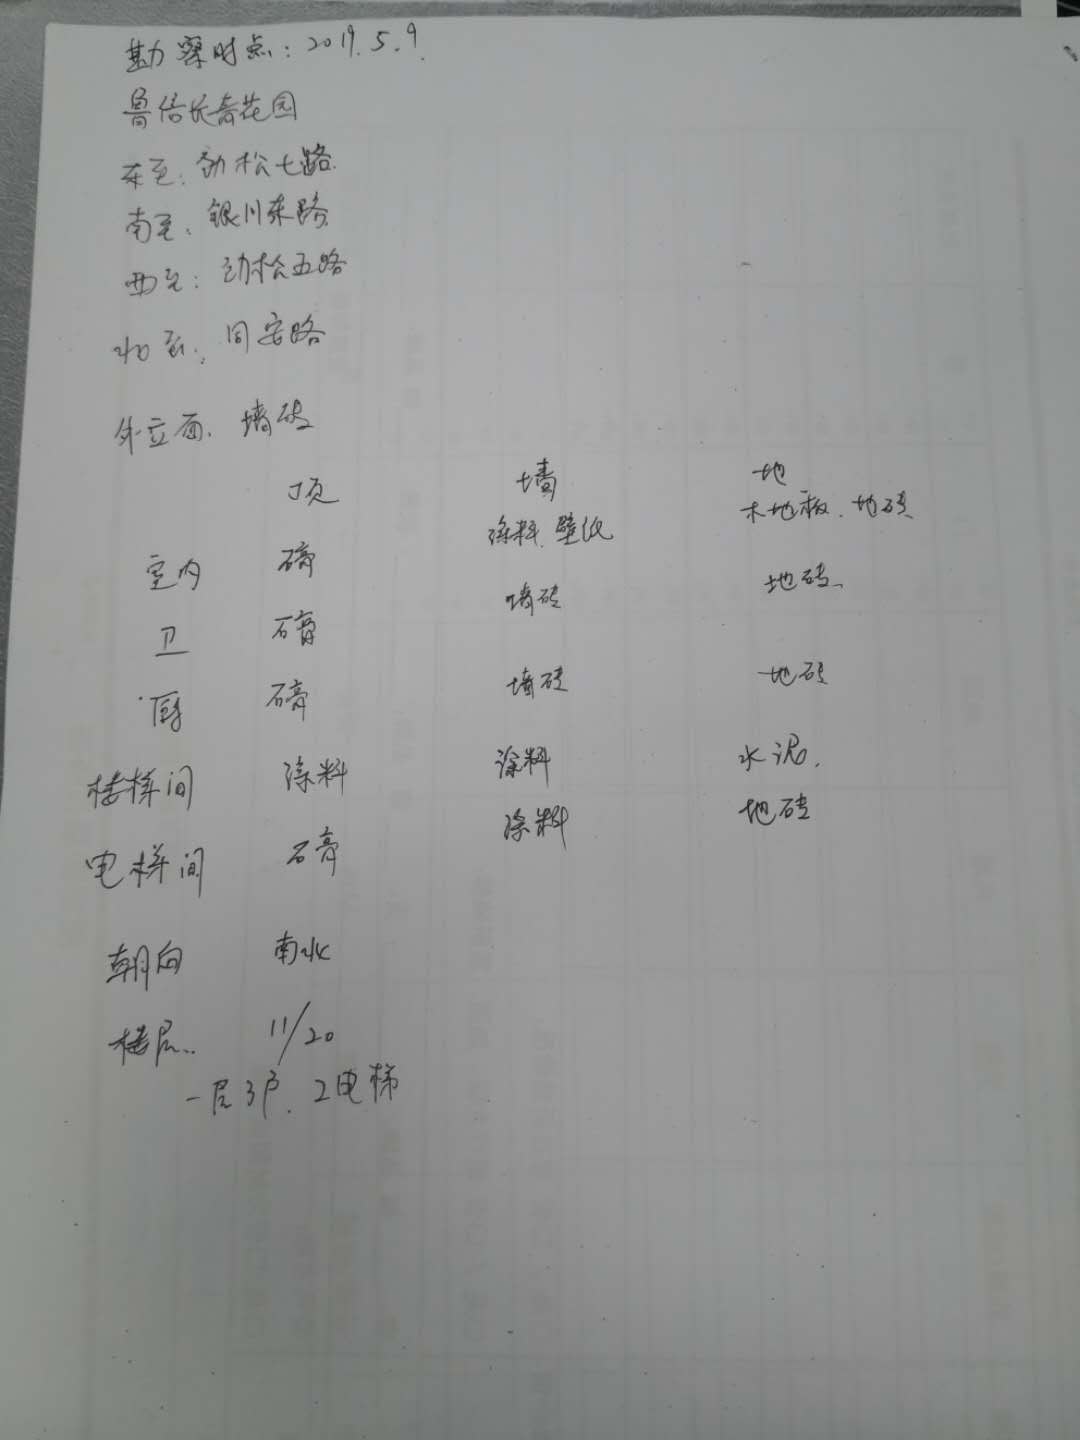 勘察时点：2019.5.9.
鲁信长春花园
东至：劲松七路.
南至：银川东路.
西至：劲松五路
北至：同安路
外立面：墙砖
顶 墙 地
室内 石膏 涂料、壁纸 木地板、地砖
卫 石膏 墙砖 地砖、
厨 石膏 墙砖 地砖
楼梯间 涂料 涂料 水泥.
电梯间 石膏 涂料 地砖
朝向 南北
楼层： 11/20
一层3户、2电梯